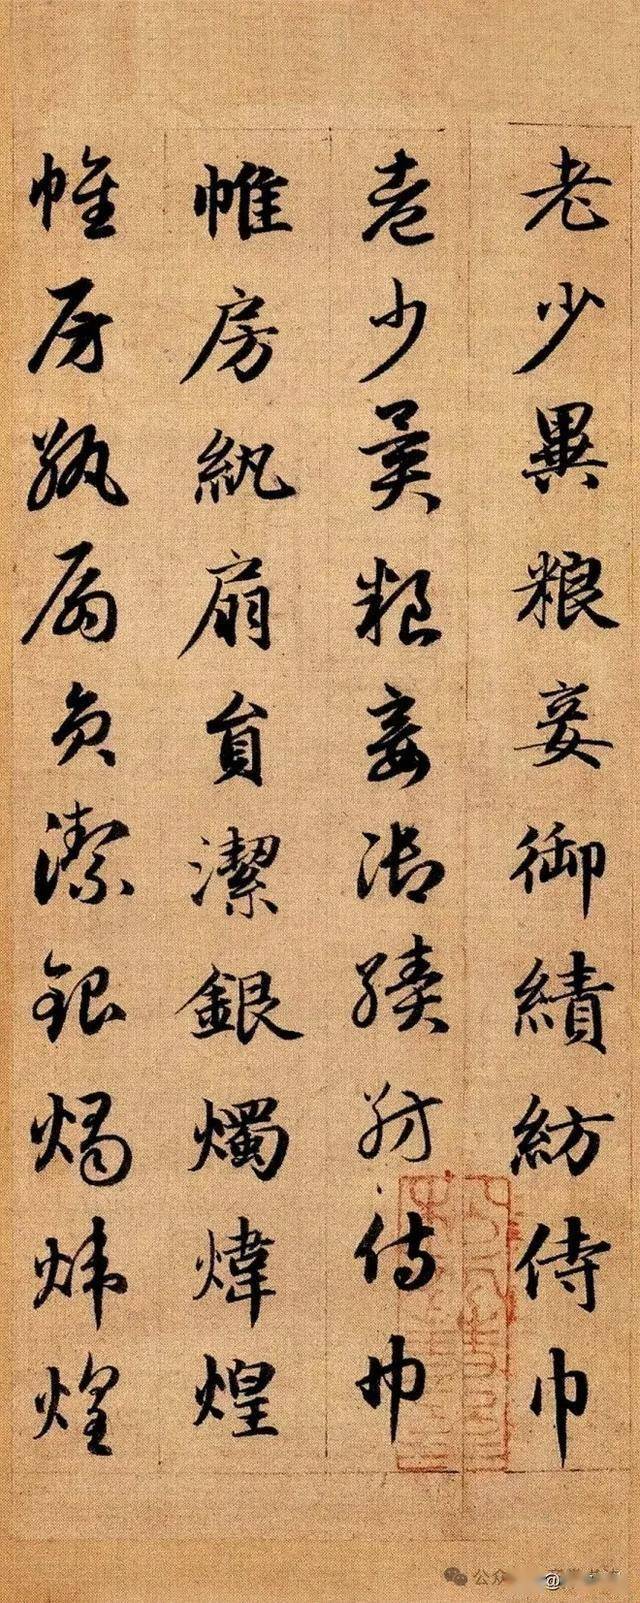 老少異粮妾御績紡侍巾
老少異粮妾御績紡侍巾
帷房紈扇員潔銀燭煒煌
帷房紈扇員潔銀燭煒煌
公众
@